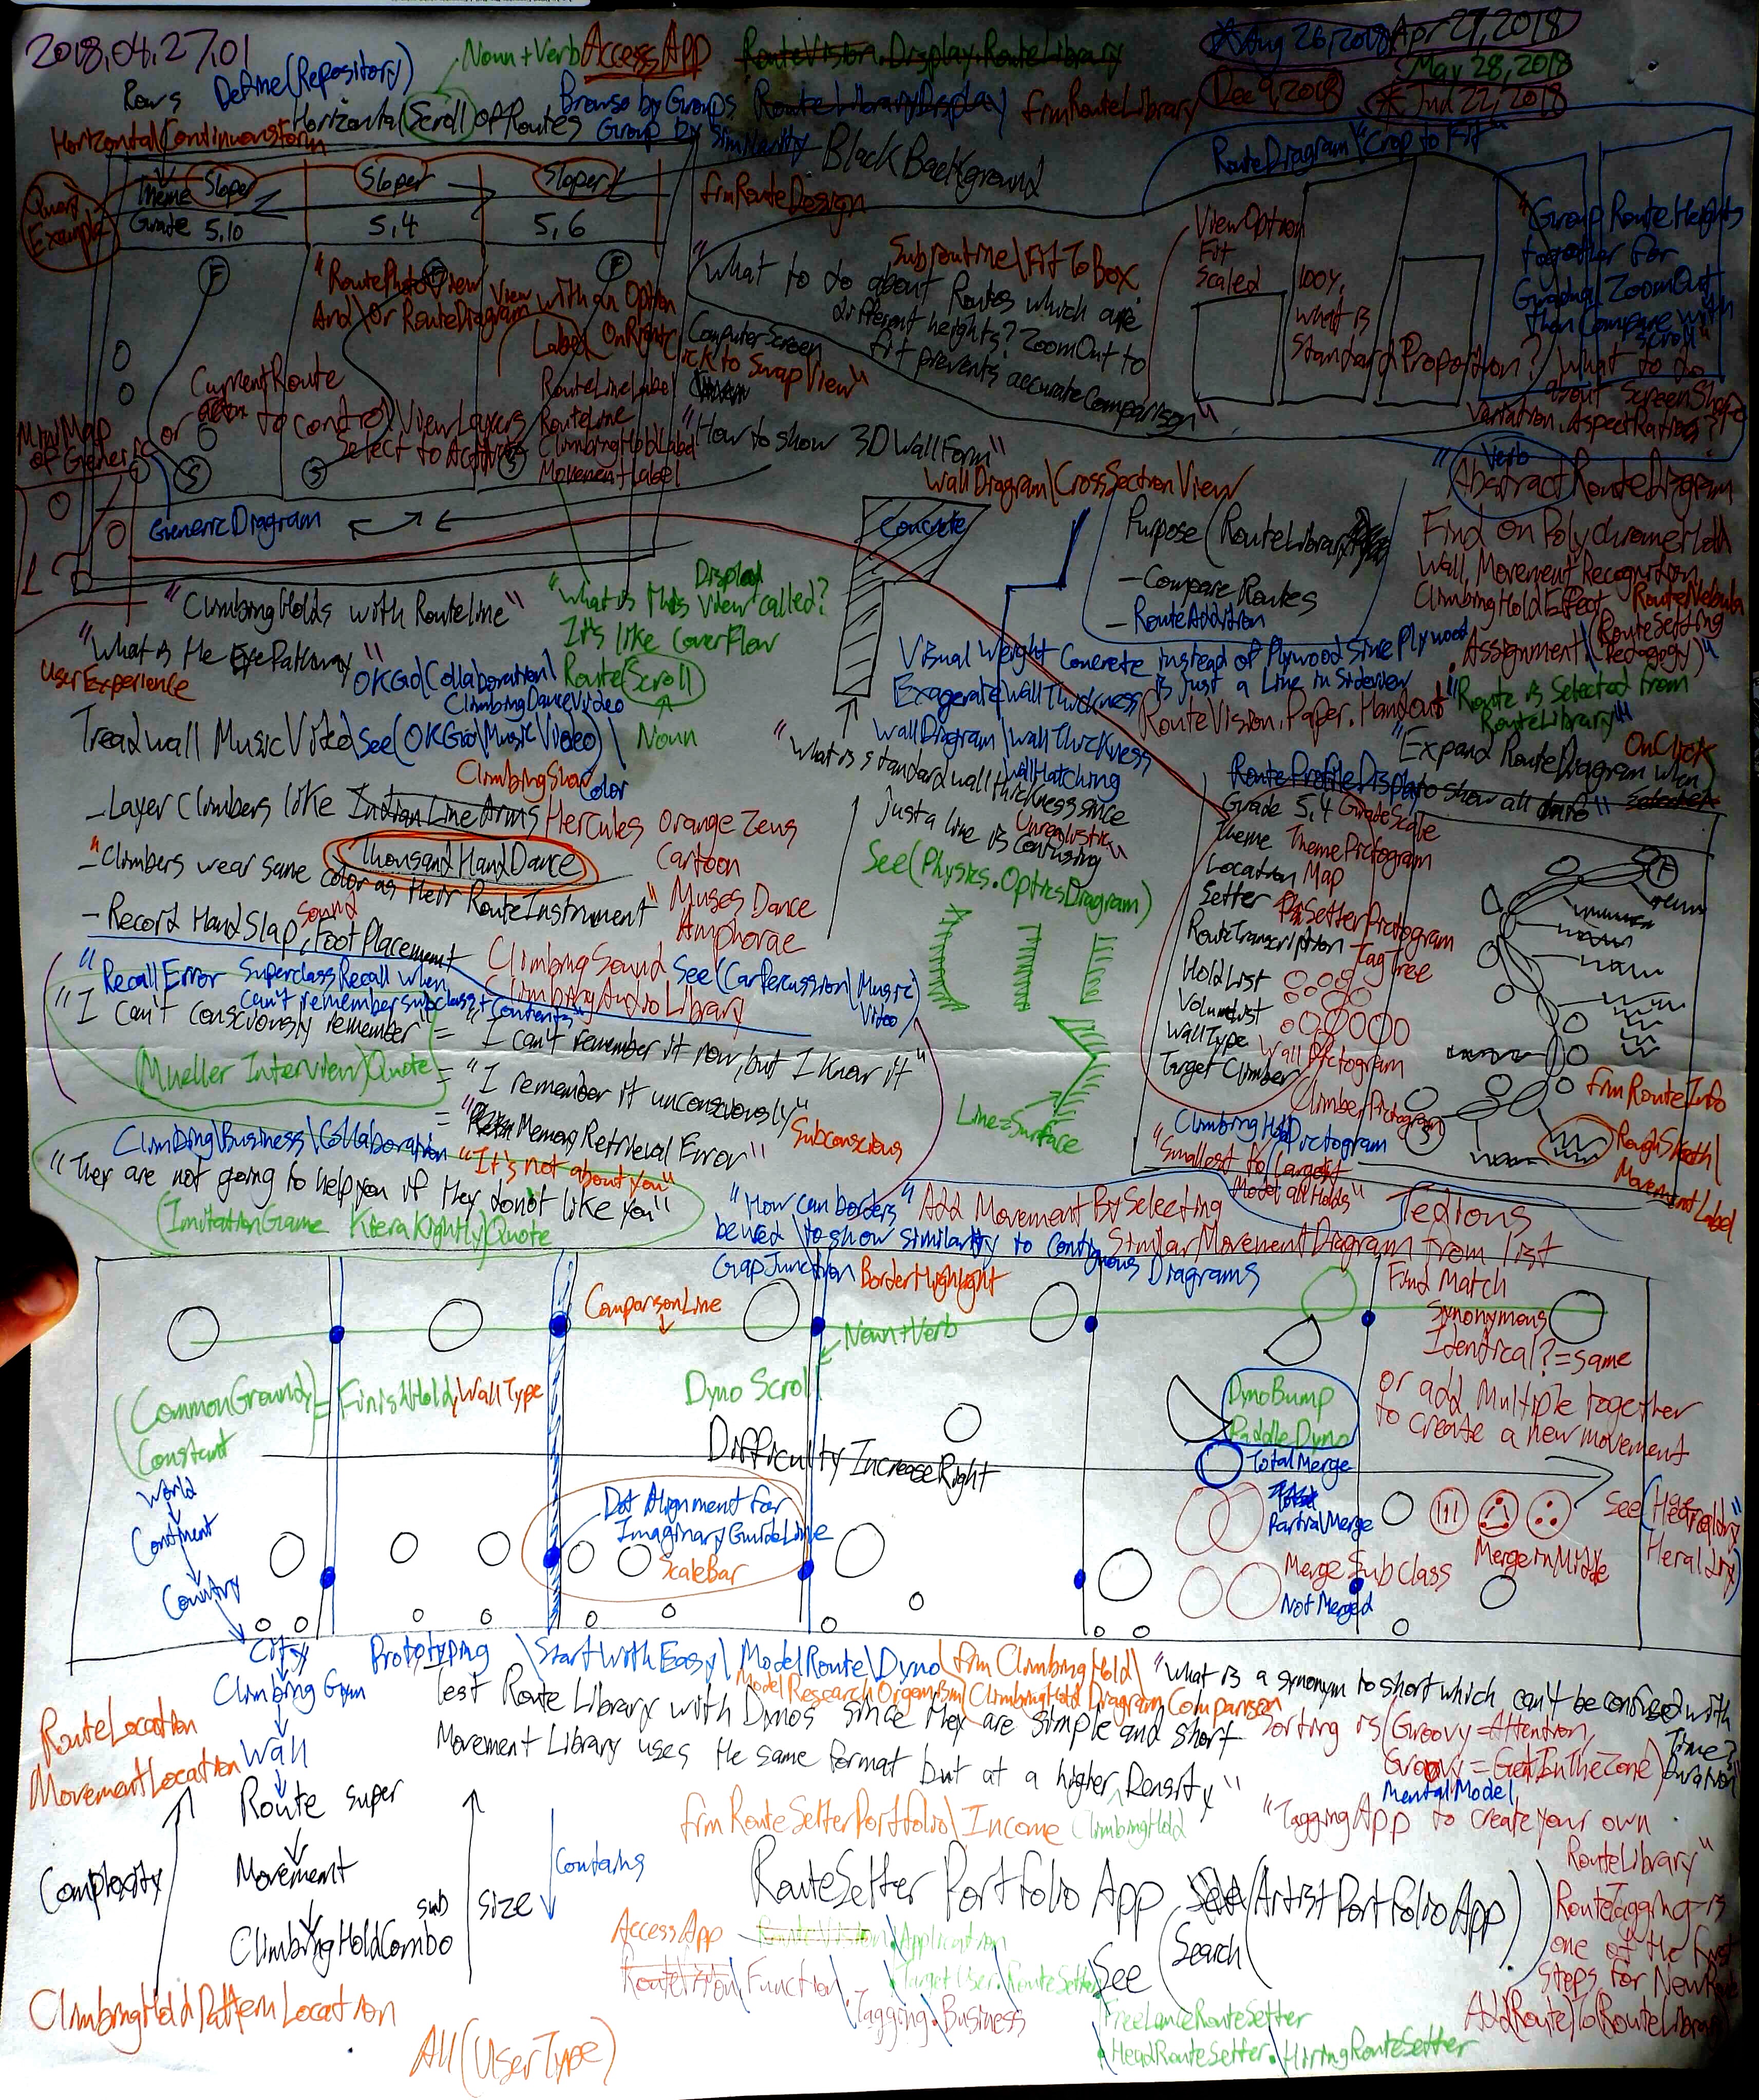 2018.04.27.01
Noun+Verb AccessApp RouteVision.Display.RouteLibrary
*Aug 26, 2018 Apr 27, 2018
May 28, 2018
Dec 9, 2018
Rows Define(Repository)
Horizontal(Scroll) of Routes
Browse by Groups RouteLibraryDisplay frmRouteLibrary
Group by Similarity
BlackBackground
RouteDiagram\"Crop to Fit"
Theme Sloper Sloper Sloper
Grade 5.10 5.4 5.6
frmRouteDesign
"RoutePhotoView
And\Or RouteDiagram View with an Option
Label OnRightClick to Swap View"
Subroutine\FitToBox
"What to do about Routes which are
different heights? ZoomOut to
fit prevents accurate Comparison"
ComputerScreen
ViewOption
Fit
Scaled
100%,
what is
Standard Proportion? What to do
about ScreenShape
Variation, AspectRatios?"
"Group RouteHeights
together for
Gradual ZoomOut
then Compare with
scroll"
CurrentRoute
to control ViewLayers
Select to Activate
RouteLineLabel
RouteLine
ClimbingHoldLabel
MovementLabel
"How to show 3D WallForm"
MiniMap
of Generic
GenericDiagram
WallDiagram\CrossSectionView
Concrete
Purpose(RouteLibrary
- Compare Routes
- RouteAddition
Verb
"AbstractRouteDiagram
Find on PolychromeHold
Wall, Movement Recognition
ClimbingHoldEffect RouteNebula
.Assignment.(RouteSetting
Pedagogy)"
"ClimbingHolds with RouteLine"
"What is this View called?
Display
It's like CoverFlow
Route(Scroll)
Noun
"What is the EyePathway"
UserExperience
OKGo(Collaboration)
ClimbingDanceVideo
Treadwall MusicVideo\See(OKGo\MusicVideo)\
Visual Weight Concrete instead of Plywood since Plywood
is just a Line in Sideview
Exagerate WallThickness
WallDiagram\WallThickness
WallHatching
RouteVision.Paper.Handout
"Route is Selected from
RouteLibrary"
"What is standard wall thickness since
just a line is confusing
Unrealistic"
See(Physics.OpticsDiagram)
"Expand RouteDiagram when
OnClick
to show all info"
RouteProfileDisplay
ClimbingShoe
Color
- Layer Climbers like IndianLineArms Hercules Orange Zeus
Cartoon
- "Climbers wear same color as their RouteInstrument"
ThousandHandDance
Muses Dance
Amphorae
- Record HandSlap, FootPlacement
Sound
ClimbingSound See(CarPercussion\Music
Video)
ClimbingAudioLibrary
Grade 5.4 GradeScale
Theme ThemePictogram
Location Map
Setter SetterPictogram
RouteTranscription TagTree
HoldList
VolumeList
WallType WallPictogram
Target Climber ClimberPictogram
ClimbingHoldPictogram
"Smallest to Largest
Model all Holds"
frmRouteInfo
RoughSketch\
MovementLabel
"RecallError SuperclassRecall when
can't remember subclass+Contents"
"I can't consciously remember" = "I can't remember it now, but I know it"
(Mueller Interview)Quote = "I remember it unconsciously"
= "Memory Retrieval Error" Subconscious
Line=Surface
Climbing\Business\Collaboration "It's not about you"
"They are not going to help you if they do not like you"
(ImitationGame KieraKnightly)Quote
"How can borders
be used to show similarity to contiguous
Diagrams
"Add Movement By Selecting
SimilarMovementDiagram from list
Tedious
GapJunction BorderHighlight
ComparisonLine
Noun+Verb
Find Match
Synonymous
Identical? = same
or add Multiple together
to create a new movement
(CommonGround) = FinishHold, WallType
Constant
Dyno Scroll
DynoBump
PaddleDyno
Difficulty IncreaseRight
TotalMerge
PartialMerge
Merge SubClass
NotMerged
MergeInMiddle
See(Heraldry)
World
Continent
Country
City
Climbing Gym
Wall
Route super
Movement
sub
ClimbingHoldCombo
Dot Alignment for
ImaginaryGuideLine
ScaleBar
Prototyping \StartWithEasy\ModelRoute\Dyno\frmClimbingHold\
ModelResearchOrganism\ClimbingHoldDiagramComparison
"What is a synonym to short which can't be confused with
Time?
Duration"
Test Route Library with Dynos since they are simple and short
Movement Library uses the same format but at a higher Density"
Sorting is(Groovy=Attention,
Groovy=GetInTheZone)
MentalModel
RouteLocation
MovementLocation
Complexity
size
Contains
frmRouteSetterPortfolio\Income ClimbingHold
"TaggingApp to create your own
RouteLibrary"
RouteSetter Portfolio App, See(ArtistPortfolioApp)
See (Search(
RouteTagging is
one of the first
Steps for New
AddRouteToRouteLibrary
AccessApp RouteVision.Application
RouteVision.Function\
.TargetUser.RouteSetter
.Tagging.Business
FreeLanceRouteSetter
.HeadRouteSetter.HiringRouteSetter
ClimbingHoldPatternLocation
All(UserType)